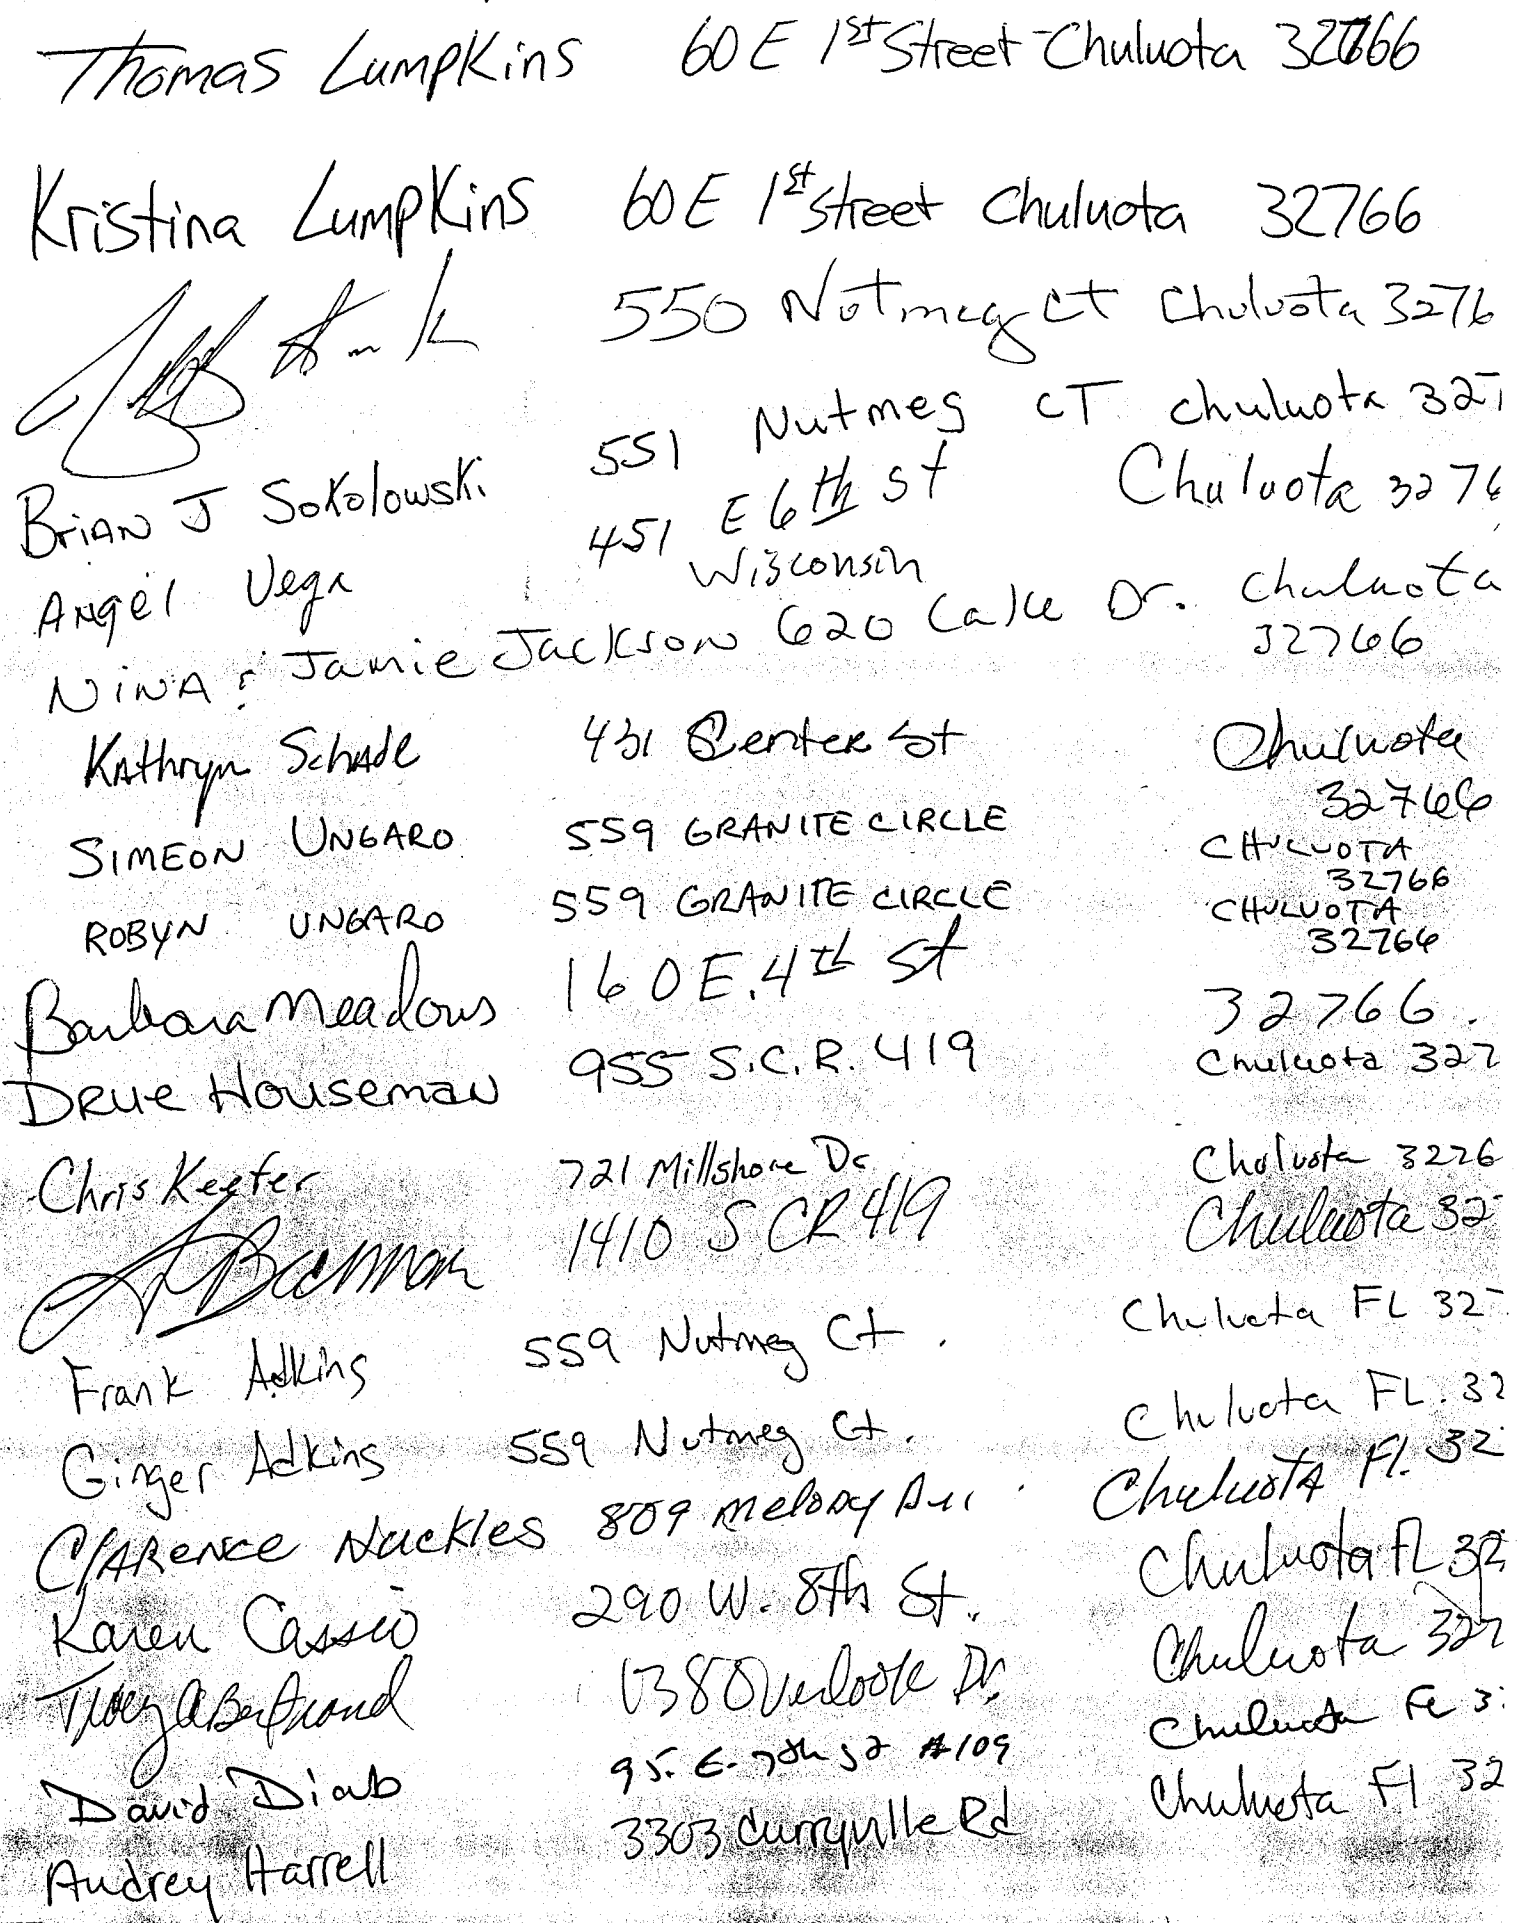 Thomas Lumpkins 60 E 1st Street Chuluota 32766
Kristina Lumpkins 60 E 1st Street Chuluota 32766
550 Nutmeg CT Chuluota 3276
Brian J Sokolowski 551 Nutmeg CT Chuluota 327
Angel Vega 451 E 6th St Chuluota 3276
Wisconsin
Nina & Jamie Jackson 620 Lake Dr. Chuluota
32766
Kathryn Schade 431 Center St Chuluota
32766
SIMEON UNGARO 559 GRANITE CIRCLE CHULUOTA
32766
ROBYN UNGARO 559 GRANITE CIRCLE CHULUOTA
32766
Barbara Meadows 160 E. 4th St 32766.
Drue Houseman 955 S.C.R. 419 Chuluota 327
Chris Keefer 721 Millshore Dr Chuluota 3276
1410 S CR 419 Chuluota 32
Frank Adkins 559 Nutmeg Ct. Chuluota FL 32
Ginger Adkins 559 Nutmeg Ct. Chuluota FL. 32
Clarence Nuckles 809 Melody Chuluota Fl. 32
Karen Cassio 290 W. 8th St. Chuluota FL 32
Tracy A Bertrand Overlook Dr. Chuluota 327
David Diab 95. E. 7th St #109 Chuluota FL 3
Audrey Harrell 3303 Curryville Rd Chuluota Fl 32